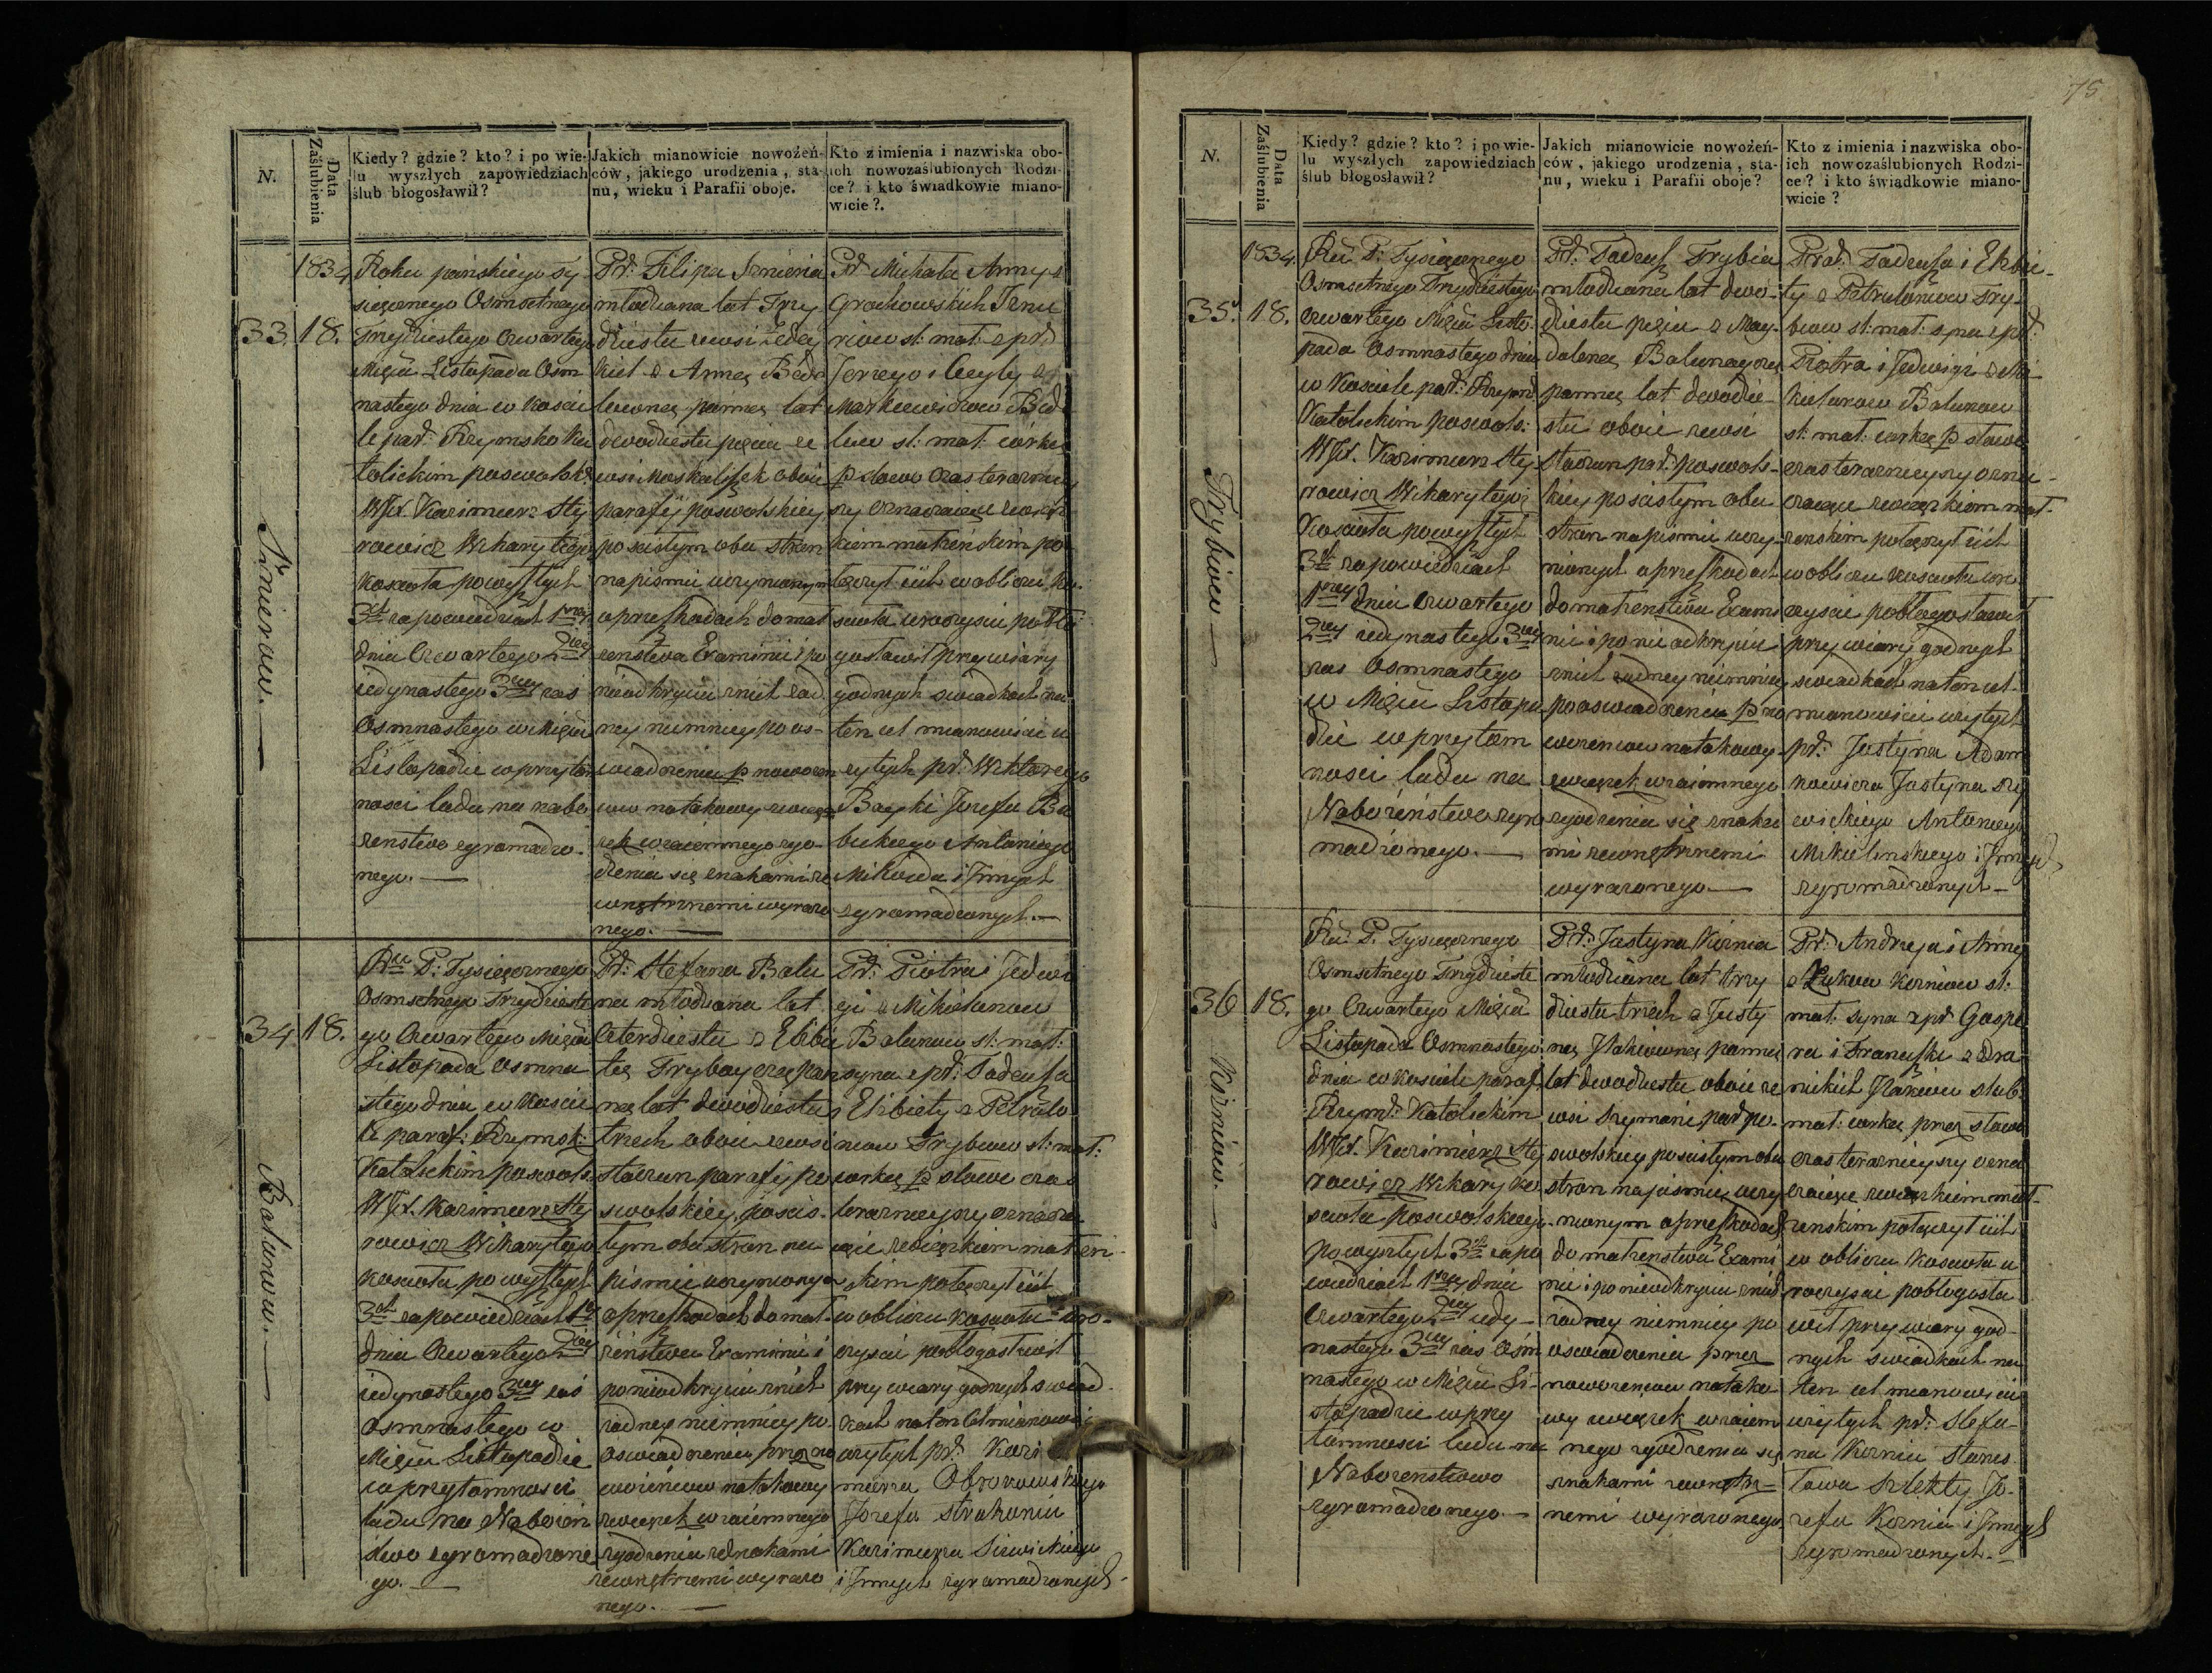 75
N.
Data Zaślubienia
Kiedy? gdzie? kto? i po wie-
lu wyszłych zapowiedziach
ślub błogosławił?
Jakich mianowicie nowożeń-
ców, jakiego urodzenia, sta-
nu, wieku i Parafii oboje.
Kto z imienia i nazwiska obo-
ich nowozaślubionych Rodzi-
ce? i kto świadkowie miano-
wicie?.
33.
1834
18.
Roku pańskiego ty
sięcznego Osmsetnego
trzydziestego czwartego
Mięcu Listopada Osm
nastego dnia w Koscie
le par: Rzymsko Ka
tolickim poswolsk:
WJX. Kazimierz Sty
rowicz Wikary tegoż
Koscioła po wyszłych
3ch zapowiedziach 1szey
dnia Czwartego 2giey
iedynastego 3ciey zaś
Osmnastego w Mięcu
Listopadzie w przytom
nosci ludu na nabo
żenstwo zgromadzo
nego.
Pr: Filipa
młodziana lat Trzy
dziestu z wsi
z Annę Bedo
lewonę pannę lat
dwudziestu pięciu ze
wsi Moskaliszek oboie
parafij poswolskiey
po scisłym obu stron
na pismie uczynionym
o przeszkodach do mał
żenstwa Examinie i po
nieodkryciu żad
ney niemniey po os-
wiadczeniu p nowożen
ców na takowy zwią
zek wzaiemnego zgo
dzenia się znakami ze
wnętrznemi wyrażo
nego.
Pr: Michała Anny z
Grochowskich
st: mał: z pr:
Jerzego i Cecyly z
Markiewiczow Bed
st: mał: córkę
p słowo czasteraźniey
szy oznaczaiące związ
kiem małżeńskim po
łączył tuż w obliczu Ko
scioła uroczyscie pobło
gosławił przy wiary
godnych swiadkach na
ten cel mianowicie u
żytych pr: Wiktorego
Bayki Jozefa Ba
Antoniego
Milowda i Jnnych
zgromadzonych.
34
18.
Balunow.
Ru P: Tysięcznego
Osmsetnego Trzydzieste
go Czwartego Mięcu
Listopada Osmna
stego dnia w Koscie
le paraf: Rzymsk:
Katolickim poswols:
WJX. Kazimierz Sty
rowicz Wikary tego
Koscioła po wyszłych
3ch zapowiedziach 1ey
dnia Czwartego 2giey
iedynastego 3ciey zaś
Osmnastego w
Mięcu Listopadzie
w przytomnosci
ludu na Nabożen
stwo zgromadzone
go.
Pr: Stefana Balu
na młodziana lat
Czterdziestu z Elżbie
tę Trybaycząpan
nę lat dwudziestu
trzech oboie z wsi
staczun parafij po
swolskiey, poscis-
łym obu stron na
pismie uczynionym
o przeszkodach do mał
żeństwa Examinie i
po nieodkryciu z nich
żadney niemniey po
oswiadczeniu przez no
wożeńcow na takowy
związek wzaiemnego
zgodzenia znakami
zewnętrznemi wyrażo
nego.
Pr: Piotra i Jedwi
gi z Mikielanow
Balunow st: mał:
syna z pr: Tadeusza
i Elżbiety z Petrulo
now Trybiow st: mał:
corkę p słowo czas
teraźnieyszy oznacza
iące związkiem małżeń
skim połączył tuż
w obliczu Koscioła uro-
czyscie pobłogosławił
przy wiary godnych swiad
kach na ten cel mianowicie
użytych pr: Kazi
mierza Obrorowskiego
Jozefa Strakania
Kazimierza Sirwickiego
i Jnnych zgromadzonych.
N.
Data Zaślubienia
Kiedy? gdzie? kto? i po wie-
lu wyszłych zapowiedziach
ślub błogosławił?
Jakich mianowicie nowożeń-
ców, jakiego urodzenia, sta-
nu, wieku i Parafii oboje?
Kto z imienia i nazwiska obo-
ich nowozaślubionych Rodzi-
ce? i kto świadkowie miano-
wicie?
35.
1834.
18.
Trybiow
Ru P: Tysięcznego
Osmsetnego Trzydziestego
czwartego Mięcu Listo-
pada Osmnastego dnia
w Kosciele par: Rzymsk
Katolickim poswols:
WJX. Kazimierz Sty
rowicz Wikary tegoż
Koscioła po wyszłych
3ch zapowiedziach
1szey dnia Czwartego
2giey iedynastego 3ciey
zas Osmnastego
w Mięcu Listopa
dzie w przytom
nosci ludu na
Nabożeństwo zgro
madzonego.
Pr: Tadeusz Trybia
młodziana lat dwu-
dziestu pięciu z Mag-
dalenę Balunayczę
pannę lat dwudzie-
stu oboie z wsi
staczun par: poswols-
kiey po scisłym obu
stron na pismie uczy-
nionych o przeszkodach
do małżenstwa Exami
nie i po nieodkryciu
z nich żadney niemniey
po oswiadczeniu p no
wożencow na takowy
związek wzaiemnego
zgodzenia się znaka
mi zewnętrznemi
wyrażonego
Prac: Tadeusza i Elżbie-
ty z Petrulanow Try-
biow st: mał: syna z pr:
Piotra i Jedwigi z Mi
kielanow Balunow
st: mał: corkę p słowo
czas teraźnieyszy ozna-
czaiące związkiem mał-
żenskim połączył tuż
w obliczu Koscioła uro
czyscie pobłogosławił
przy wiary godnych
swiadkach na ten cel
mianowicie użytych
pr: Justyna Adam
kowicza Justyna Szy
wickiego Antoniego
Mikielinskiego i Jnnych
zgromadzonych
36
18.
Korniow.
Ru P. Tysięcznego
Osmsetnego Trzydzieste
go Czwartego Mięcu
Listopada Osmnastego
dnia w Kosciele paraf.
Rzyms: Katolickim
WJX. Kazimierz Sty
rowicz Wikary Ko
scioła Poswolskiego
po wyszłych 3ch zapo
wiedziach 1szey dnia
Czwartego 2giey iedy-
nastego 3ciey zaś Osm
nastego w Mięcu Li-
stopadzie w przy
tomnosci ludu na
Nabożenstwo
zgromadzonego.
Pr: Justyna Kornia
młodziana lat trzy
dziestu trzech z Justy
nę pannę
lat dwudziestu oboie ze
wsi Szymani par po-
swolskiey po scisłym obu
stron na pismie uczy
nionym o przeszkodach
do małżenstwa Exami
nie i po nieodkryciu z nich
żadney niemniey po
oswiadczeniu przez
nowożencow na tako
wy związek wzaiem
nego zgodzenia się
znakami zewnętrz-
nemi wyrażonego.
Pr: Andrzeja i Anny
z Korniow st:
mał: syna z pr: Gaspe
ra i Franciszki z
ślub:
mał: corkę przez słowo
czas teraźnieyszy ozna
czaiące związkiem mał-
żenskim połączył tuż
w obliczu Koscioła u
roczyscie pobłogosła
wił przy wiary god-
nych swiadkach na
ten cel mianowicie
użytych pr: Stefa-
na Kornia Stanis
ława Szlekty Jo-
zefa Kornia i Jnnych
zgromadzonych.